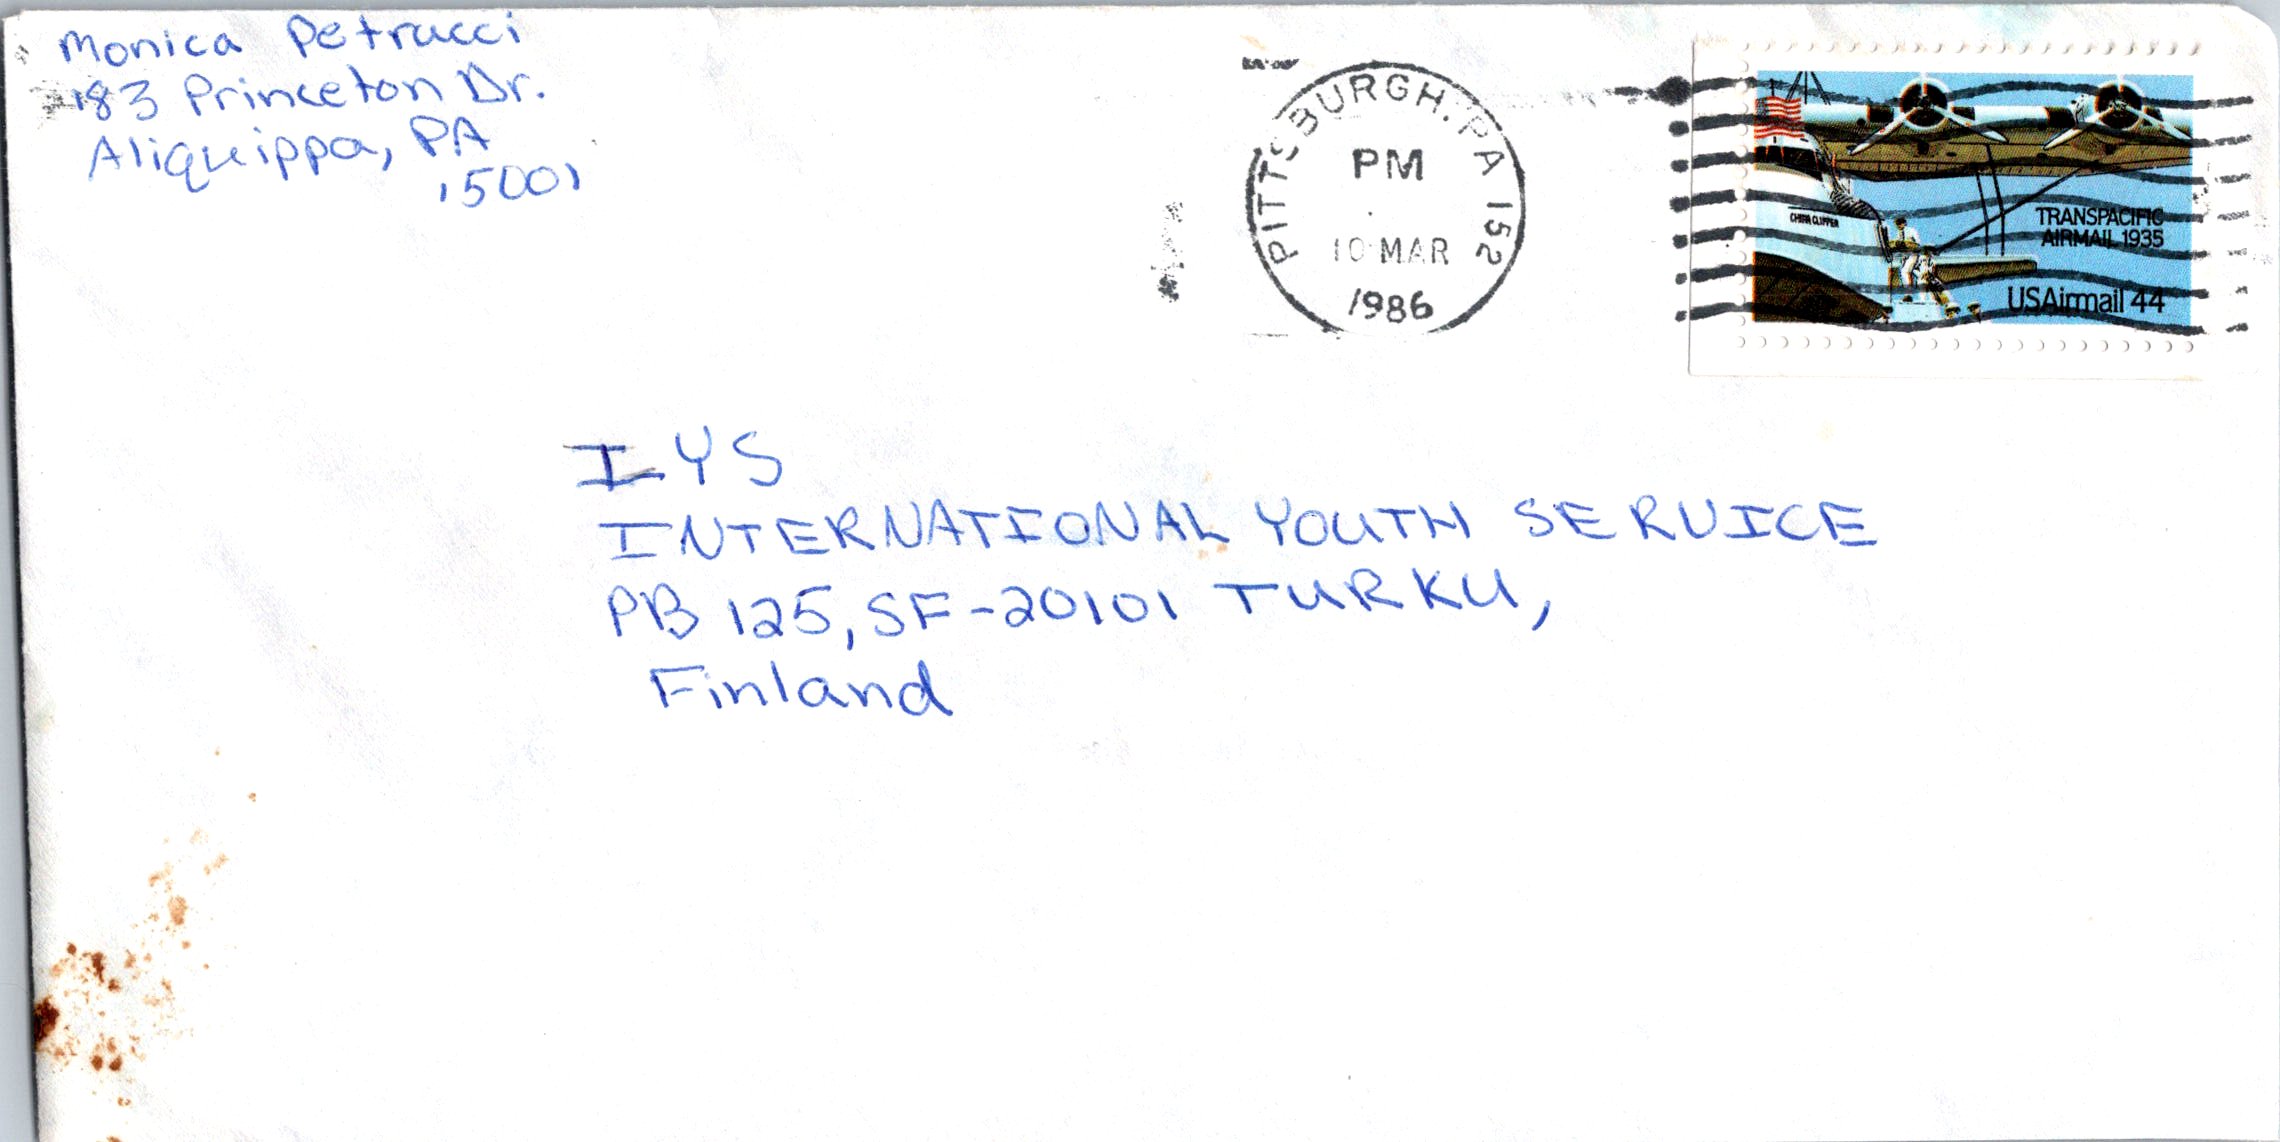 Monica Petrucci
183 Princeton Dr.
Aliquippa, PA
15001
PITTSBURGH, PA 152
PM
10 MAR
1986
CHINA CLIPPER
TRANSPACIFIC
AIRMAIL 1935
USAirmail 44
IYS
INTERNATIONAL YOUTH SERVICE
PB 125, SF-20101 TURKU,
Finland